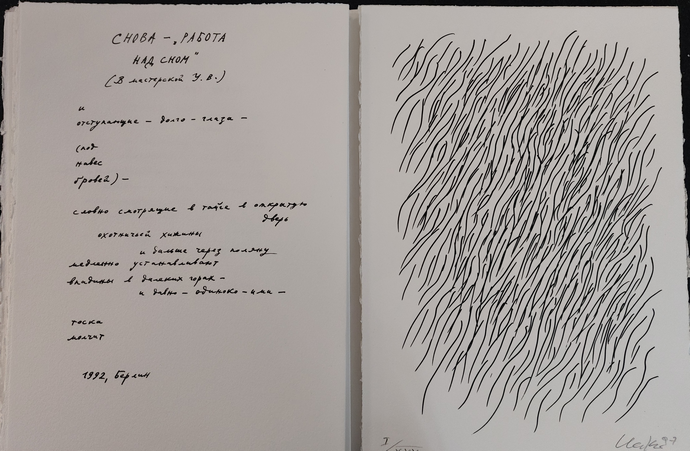 СНОВА — „РАБОТА
НАД СНОМ"
(В мастерской У.В.)
и
отступающие — долго — глаза —
(под
навес
бровей) —
словно смотрящие в тайге в открытую
дверь
охотничьей хижины
и дальше через поляну
медленно устанавливают
впадины в далеких горах —
и давно — одиноко —
тоска
молчит
1992, Берлин
I/XVIII
97